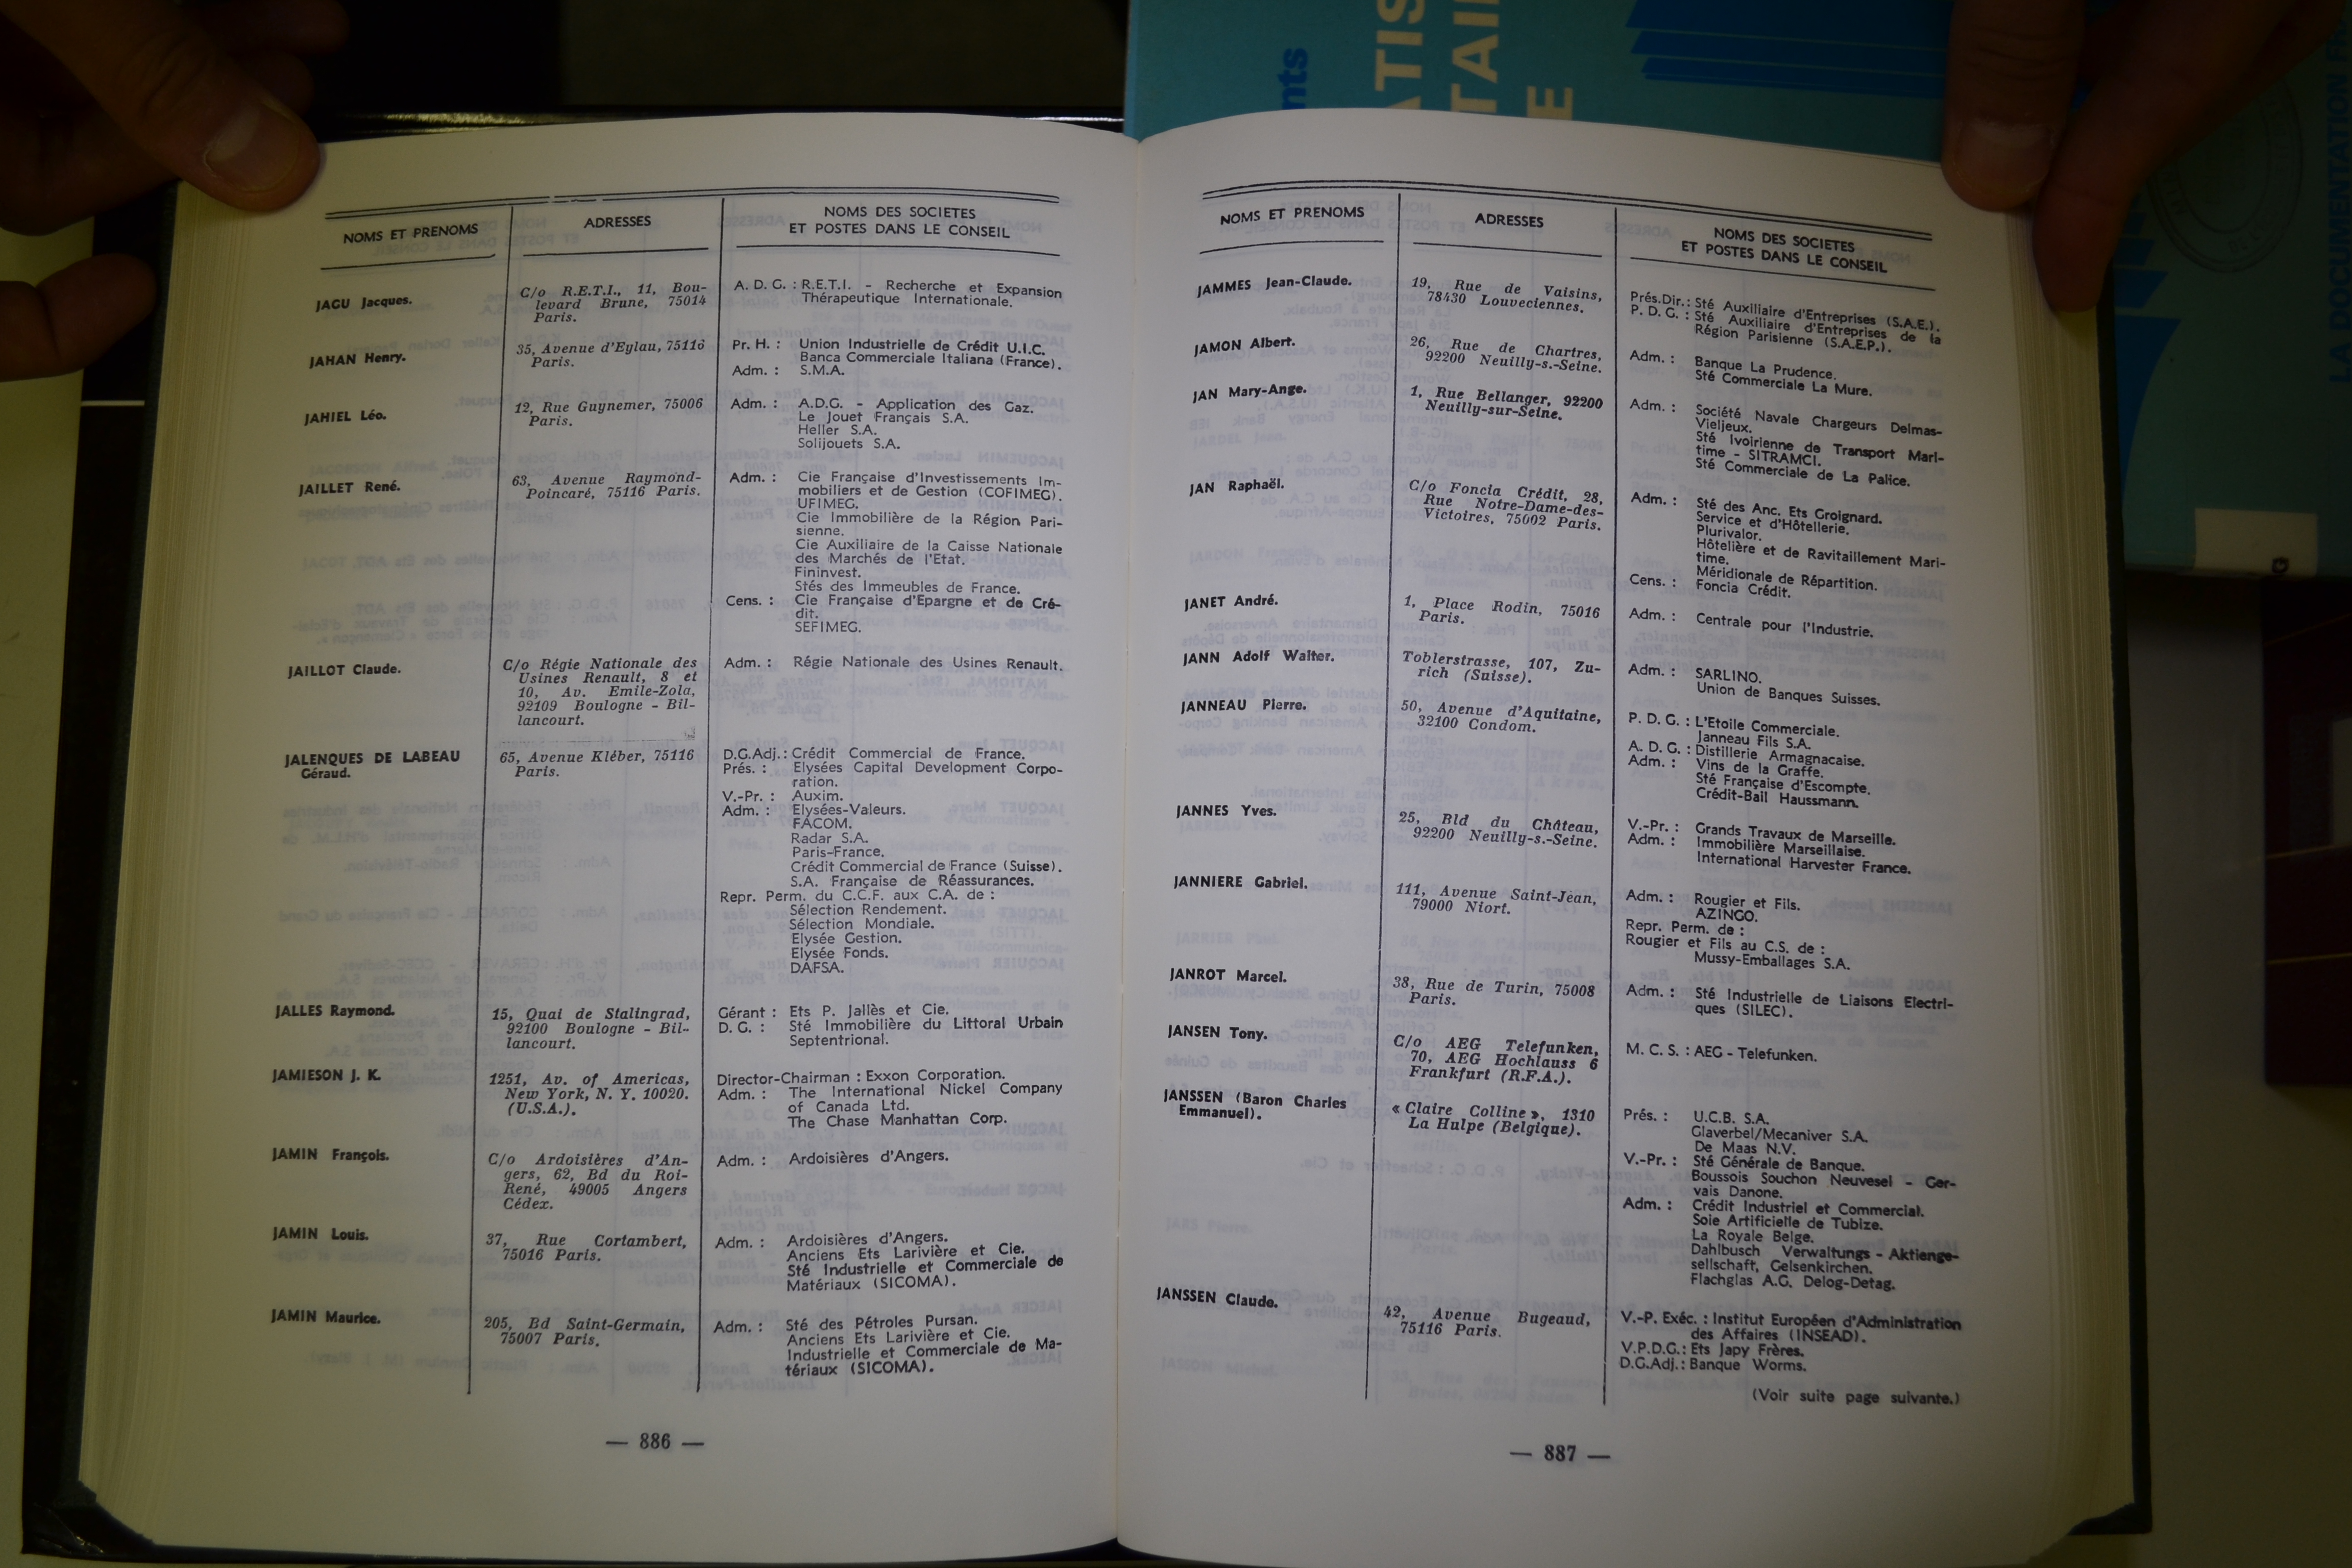 NOMS ET PRENOMS
ADRESSES
NOMS DES SOCIETES
ET POSTES DANS LE CONSEIL
JAGU Jacques.
C/o R.E.T.I., 11, Bou-
levard Brune, 75014
Paris.
A. D. G. : R.E.T.I. - Recherche et Expansion
Thérapeutique Internationale.
JAHAN Henry.
35, Avenue d'Eylau, 75116
Paris.
Pr. H. : Union Industrielle de Crédit U.I.C.
Banca Commerciale Italiana (France).
Adm. : S.M.A.
JAHIEL Léo.
12, Rue Guynemer, 75006
Paris.
Adm. : A.D.G. - Application des Gaz.
Le Jouet Français S.A.
Heller S.A.
Solijouets S.A.
JAILLET René.
63, Avenue Raymond-
Poincaré, 75116 Paris.
Adm. : Cie Française d'Investissements Im-
mobiliers et de Gestion (COFIMEG).
UFIMEG.
Cie Immobilière de la Région Pari-
sienne.
Cie Auxiliaire de la Caisse Nationale
des Marchés de l'Etat.
Fininvest.
Stés des Immeubles de France.
Cens. : Cie Française d'Epargne et de Cré-
dit.
SEFIMEG.
JAILLOT Claude.
C/o Régie Nationale des
Usines Renault, 8 et
10, Av. Emile-Zola,
92109 Boulogne - Bil-
lancourt.
Adm. : Régie Nationale des Usines Renault.
JALENQUES DE LABEAU
Géraud.
65, Avenue Kléber, 75116
Paris.
D.G.Adj. : Crédit Commercial de France.
Prés. : Elysées Capital Development Corpo-
ration.
V.-Pr. : Auxim.
Adm. : Elysées-Valeurs.
FACOM.
Radar S.A.
Paris-France.
Crédit Commercial de France (Suisse).
S.A. Française de Réassurances.
Repr. Perm. du C.C.F. aux C.A. de :
Sélection Rendement.
Sélection Mondiale.
Elysée Gestion.
Elysée Fonds.
DAFSA.
JALLES Raymond.
15, Quai de Stalingrad,
92100 Boulogne - Bil-
lancourt.
Gérant : Ets P. Jallès et Cie.
D. G. : Sté Immobilière du Littoral Urbain
Septentrional.
JAMIESON J. K.
1251, Av. of Americas,
New York, N. Y. 10020.
(U.S.A.).
Director-Chairman : Exxon Corporation.
Adm. : The International Nickel Company
of Canada Ltd.
The Chase Manhattan Corp.
JAMIN François.
C/o Ardoisières d'An-
gers, 62, Bd du Roi-
René, 49005 Angers
Cédex.
Adm. : Ardoisières d'Angers.
JAMIN Louis.
37, Rue Cortambert,
75016 Paris.
Adm. : Ardoisières d'Angers.
Anciens Ets Larivière et Cie.
Sté Industrielle et Commerciale de
Matériaux (SICOMA).
JAMIN Maurice.
205, Bd Saint-Germain,
75007 Paris.
Adm. : Sté des Pétroles Pursan.
Anciens Ets Larivière et Cie.
Industrielle et Commerciale de Ma-
tériaux (SICOMA).
— 886 —
NOMS ET PRENOMS
ADRESSES
NOMS DES SOCIETES
ET POSTES DANS LE CONSEIL
JAMMES Jean-Claude.
19, Rue de Vaisins,
78430 Louveciennes.
Prés.Dir. : Sté Auxiliaire d'Entreprises (S.A.E.).
P. D. G. : Sté Auxiliaire d'Entreprises de la
Région Parisienne (S.A.E.P.).
JAMON Albert.
26, Rue de Chartres,
92200 Neuilly-s.-Seine.
Adm. : Banque La Prudence.
Sté Commerciale La Mure.
JAN Mary-Ange.
1, Rue Bellanger, 92200
Neuilly-sur-Seine.
Adm. : Société Navale Chargeurs Delmas-
Vieljeux.
Sté Ivoirienne de Transport Mari-
time - SITRAMCI.
Sté Commerciale de La Palice.
JAN Raphaël.
C/o Foncia Crédit, 28,
Rue Notre-Dame-des-
Victoires, 75002 Paris.
Adm. : Sté des Anc. Ets Groignard.
Service et d'Hôtellerie.
Plurivalor.
Hôtelière et de Ravitaillement Mari-
time.
Méridionale de Répartition.
Cens. : Foncia Crédit.
JANET André.
1, Place Rodin, 75016
Paris.
Adm. : Centrale pour l'Industrie.
JANN Adolf Walter.
Toblerstrasse, 107, Zu-
rich (Suisse).
Adm. : SARLINO.
Union de Banques Suisses.
JANNEAU Pierre.
50, Avenue d'Aquitaine,
32100 Condom.
P. D. G. : L'Etoile Commerciale.
Janneau Fils S.A.
A. D. G. : Distillerie Armagnacaise.
Adm. : Vins de la Graffe.
Sté Française d'Escompte.
Crédit-Bail Haussmann.
JANNES Yves.
25, Bld du Château,
92200 Neuilly-s.-Seine.
V.-Pr. : Grands Travaux de Marseille.
Adm. : Immobilière Marseillaise.
International Harvester France.
JANNIERE Gabriel.
111, Avenue Saint-Jean,
79000 Niort.
Adm. : Rougier et Fils.
AZINGO.
Repr. Perm. de :
Rougier et Fils au C.S. de :
Mussy-Emballages S.A.
JANROT Marcel.
38, Rue de Turin, 75008
Paris.
Adm. : Sté Industrielle de Liaisons Electri-
ques (SILEC).
JANSEN Tony.
C/o AEG Telefunken,
70, AEG Hochlauss 6
Frankfurt (R.F.A.).
M. C. S. : AEG - Telefunken.
JANSSEN (Baron Charles
Emmanuel).
« Claire Colline », 1310
La Hulpe (Belgique).
Prés. : U.C.B. S.A.
Glaverbel/Mecaniver S.A.
De Maas N.V.
V.-Pr. : Sté Générale de Banque.
Boussois Souchon Neuvesel - Ger-
vais Danone.
Adm. : Crédit Industriel et Commercial.
Soie Artificielle de Tubize.
La Royale Belge.
Dahlbusch Verwaltungs - Aktienge-
sellschaft, Gelsenkirchen.
Flachglas A.G. Delog-Detag.
JANSSEN Claude.
42, Avenue Bugeaud,
75116 Paris.
V.-P. Exéc. : Institut Européen d'Administration
des Affaires (INSEAD).
V.P.D.G. : Ets Japy Frères.
D.G.Adj. : Banque Worms.
(Voir suite page suivante.)
— 887 —